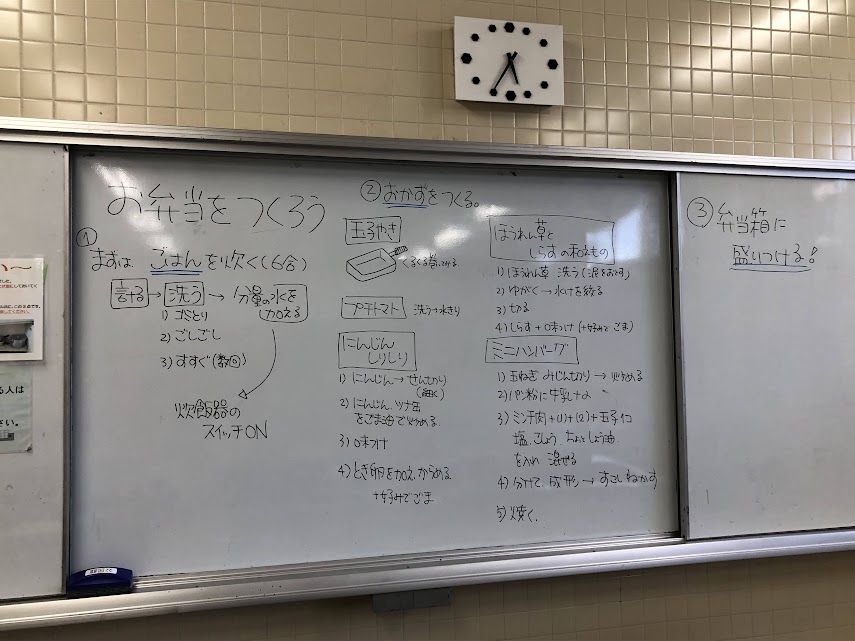 お弁当をつくろう
①
まずは ごはんを炊く(6合)
計る→洗う→分量の水を
加える
1) ゴミとり
2) ごしごし
3) すすぐ(数回)
炊飯器の
スイッチON
②おかずをつくる。
玉子やき
くるくる巻
プチトマト 洗う→水きり
にんじん
しりしり
1) にんじん→せん切り
(細く)
2) にんじん、ツナ缶
をごま油で炒める
3) 味つけ
4) とき卵を加え、からめる
+好みでごま
ほうれん草と
しらすの和えもの
1) ほうれん草 洗う(泥をおとす)
2) ゆがく→水けを絞る
3) 切る
4) しらす+味つけ(+好みで ごま)
ミニハンバーグ
1) 玉ねぎ みじん切り→炒める
2) パン粉に牛乳+
3) ミンチ肉+(1)+(2)+玉子
塩、こしょう、しょう油
を入れ 混ぜる
4) 分けて、成形→すこしねかす
5) 焼く。
③弁当箱に
盛りつける!
い〜
る人は
さい。